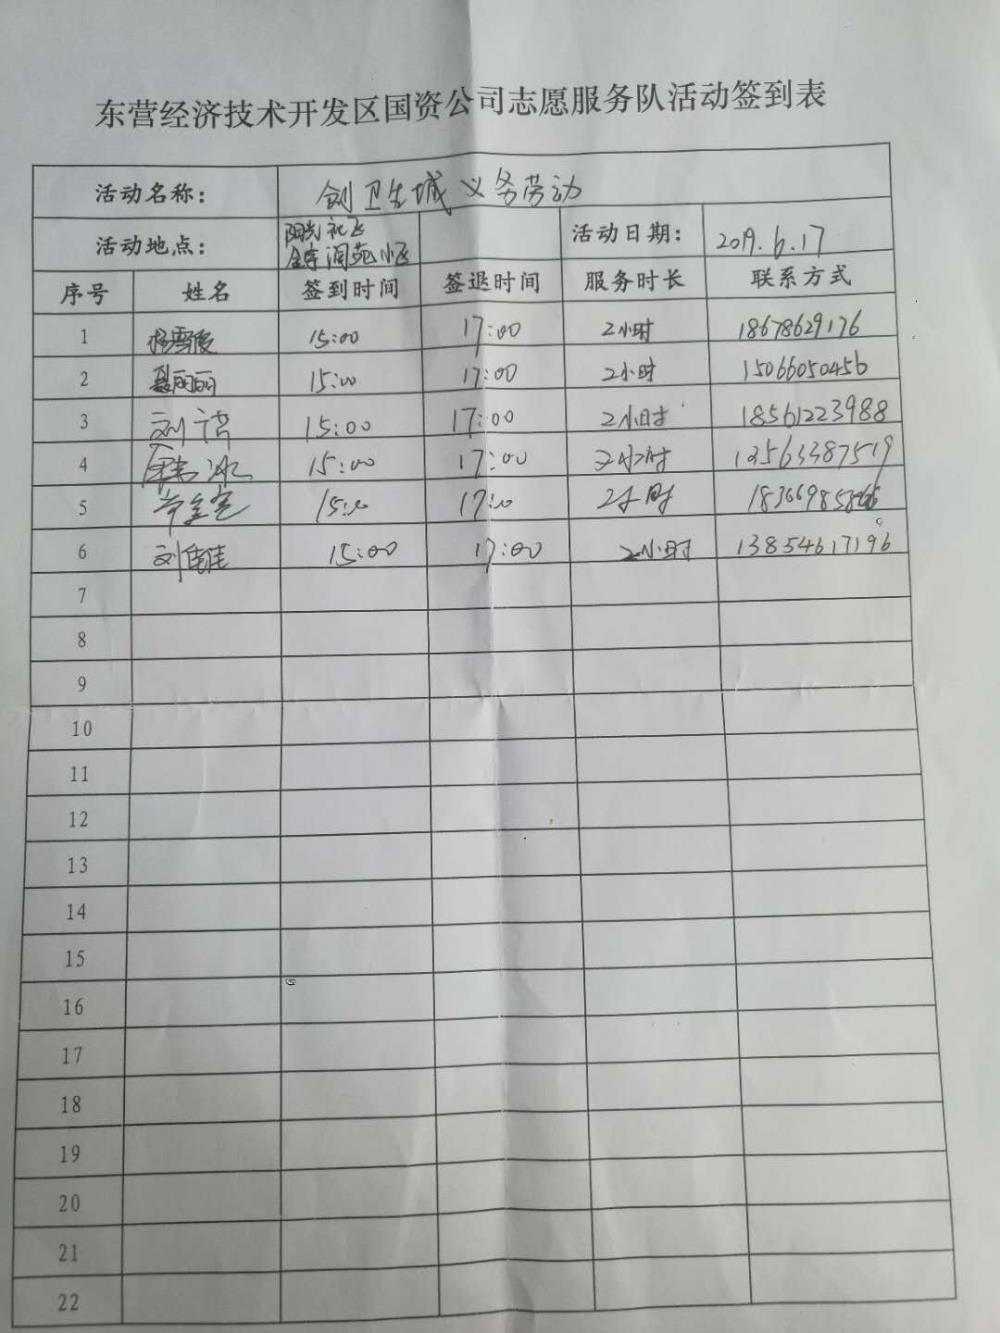 东营经济技术开发区国资公司志愿服务队活动签到表
活动名称： 创卫生城义务劳动
活动地点： 阳光社区 小区 活动日期： 2019.6.17
序号 姓名 签到时间 签退时间 服务时长 联系方式
1 杨雪俊 15:00 17:00 2小时 18678629176
2 聂丽丽 15:00 17:00 2小时 15066050456
3 刘 15:00 17:00 2小时 18561223988
4 冰 15:00 17:00 2小时 13563387519
5 15:00 17:00 2小时
6 刘佳佳 15:00 17:00 2小时 13854617196
7
8
9
10
11
12
13
14
15
16
17
18
19
20
21
22